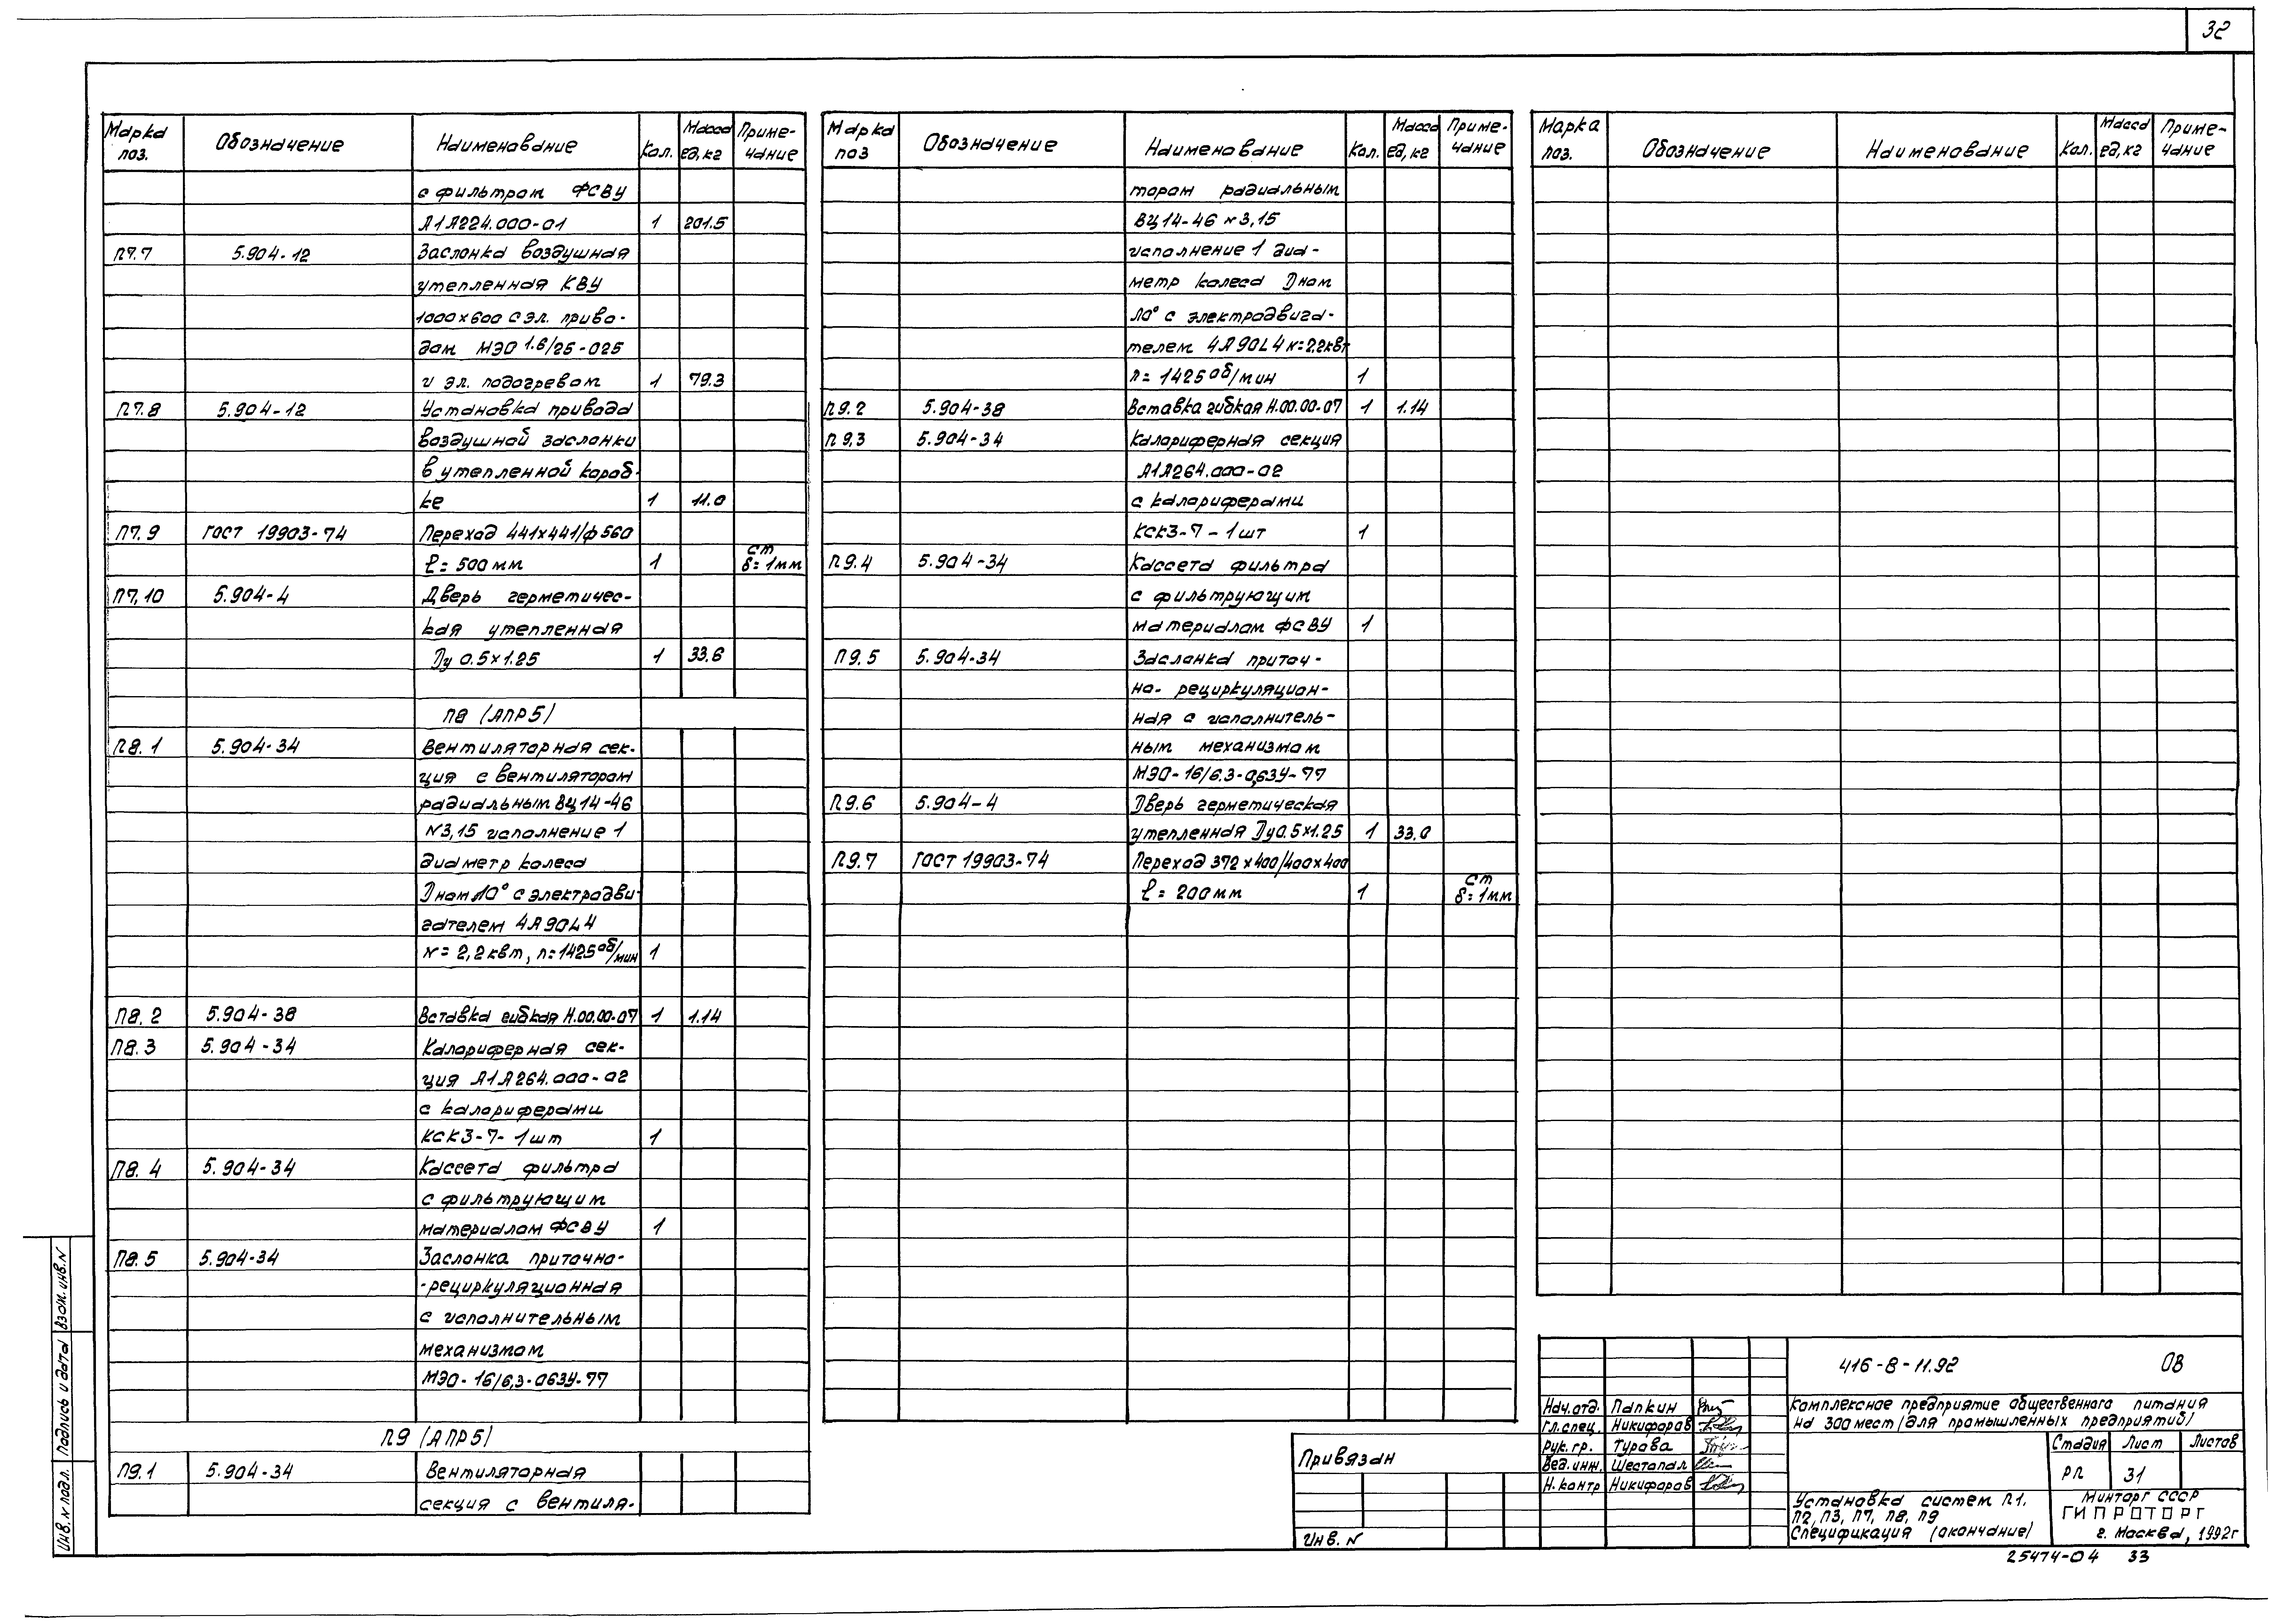 32
Марка поз. Обозначение Наименование Кол. Масса ед, кг Приме- чание
с фильтром ФСВУ
А1А224.000-01 1 201.5
П7.7 5.904-12 Заслонка воздушная
утепленная КВУ
1000х600 с эл. приво-
дом МЭО 1.6/25-025
и эл. подогревом 1 79.3
П7.8 5.904-12 Установка привода
воздушной заслонки
в утепленной короб-
ке 1 11.0
П7.9 ГОСТ 19903-74 Переход 441х441/ф560
ℓ= 500мм 1 Ст δ=1мм
П7.10 5.904-4 Дверь герметичес-
кая утепленная
Ду 0.5х1.25 1 33.6
П8 (АПР5)
П8.1 5.904-34 Вентиляторная сек-
ция с вентилятором
радиальным ВЦ14-46
N3,15 исполнение 1
диаметр колеса
Dном Л0° с электродви-
гателем 4А90L4
N= 2,2квт, n=1425об/мин 1
П8.2 5.904-38 Вставка гибкая Н.00.00-07 1 1.14
П8.3 5.904-34 Калориферная сек-
ция А1А264.000-02
с калориферами
КСК3-7-1шт 1
П8.4 5.904-34 Кассета фильтра
с фильтрующим
материалом ФСВУ 1
П8.5 5.904-34 Заслонка приточно-
-рециркуляционная
с исполнительным
механизмом
МЭО-16/6,3-063У-77
П9 (АПР5)
П9.1 5.904-34 Вентиляторная
секция с вентиля-
Марка поз Обозначение Наименование Кол. Масса ед, кг Приме- чание
тором радиальным
ВЦ14-46 N3,15
исполнение 1 диа-
метр колеса Dном
Л0° с электродвига-
телем 4А90L4 N=2,2кВт
n= 1425об/мин 1
П9.2 5.904-38 Вставка гибкая Н.00.00-07 1 1.14
П9.3 5.904-34 Калориферная секция
А1А264.000-02
с калориферами
КСК3-7-1шт 1
П9.4 5.904-34 Кассета фильтра
с фильтрующим
материалом ФСВУ 1
П9.5 5.904-34 Заслонка приточ-
но- рециркуляцион-
ная с исполнитель-
ным механизмом
МЭО-16/6.3-0,63У-77
П9.6 5.904-4 Дверь герметическая
утепленная Ду0.5х1.25 1 33.0
П9.7 ГОСТ 19903-74 Переход 372х400/400х400
ℓ= 200мм 1 Ст δ=1мм
Марка поз. Обозначение Наименование Кол. Масса ед, кг Приме- чание
Инв. N подл. Подпись и дата Взам. инв. N
Привязан
Инв. N
416-8-11.92 ОВ
Нач. отд. Папкин
Гл. спец. Никифоров
Рук. гр. Турова
Вед. инж. Шестопал
Н. контр Никифоров
Комплексное предприятие общественного питания
на 300 мест (для промышленных предприятий)
Стадия Лист Листов
РП 31
Установка систем П1,
П2, П3, П7, П8, П9
Спецификация (окончание)
Минторг СССР
ГИПРОТОРГ
г. Москва, 1992г
25474-04 33